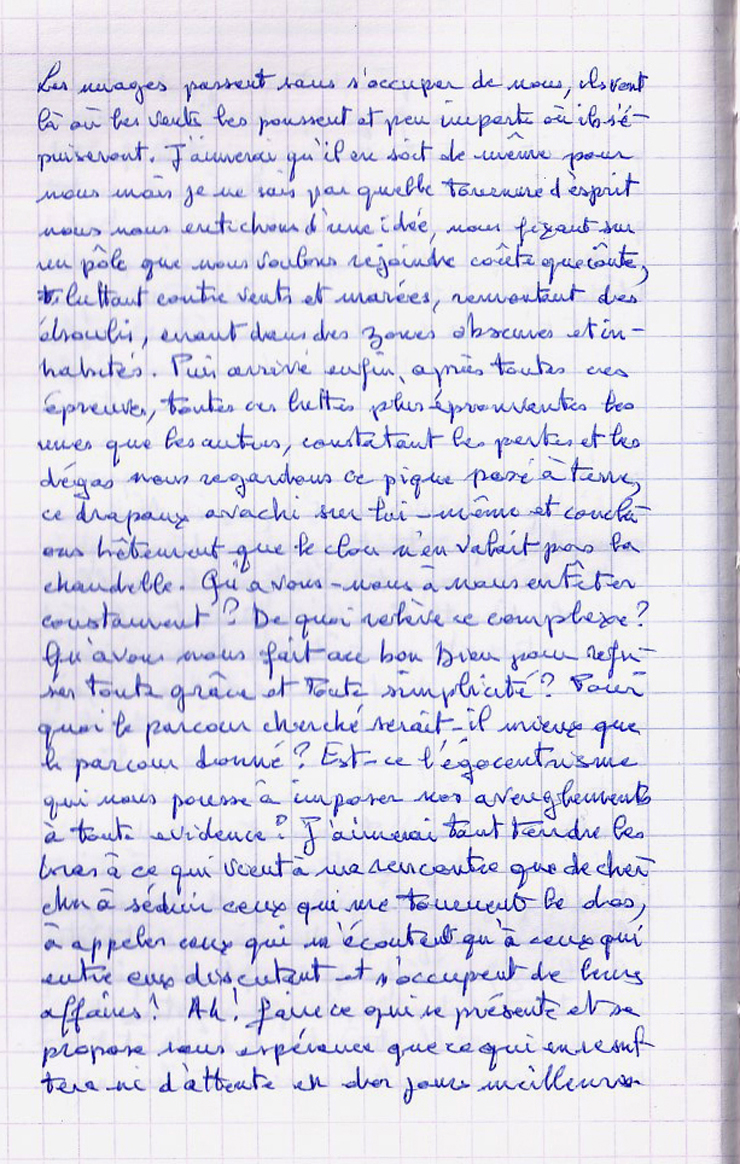 Les nuages passent sans s'occuper de nous, ils vont
là où les vents les poussent et peu importe où ils s'é-
puiseront. J'aimerai qu'il en soit de même pour
nous mais je ne sais par quelle tournure d'esprit
nous nous entichons d'une idée, nous fixant sur
un pôle que nous voulons rejoindre coûte que coûte,
luttant contre vents et marées, remontant des
éboulis, errant dans des zones obscures et in-
habités. Puis arrivé enfin, après toutes ces
épreuves, toutes ces luttes plus éprouventes les
unes que les autres, constatant les pertes et les
dégas nous regardons ce pique posé à terre,
ce drapaux avachi sur lui-même et conclu-
ons bêtement que le clou n'en valait pas la
chandelle. Qu'avons-nous à nous entêter
constamment? De quoi relève ce complexe?
Qu'avons nous fait au bon Dieu pour refu-
ser toute grâce et toute simplicité? Pour
quoi le parcour cherché serait-il mieux que
le parcour donné? Est-ce l'égocentrisme
qui nous pousse à imposer nos aveuglements
à toute evidence? J'aimerai tant tendre les
bras à ce qui vient à ma rencontre que de cher
cher à séduir ceux qui me tournent le dos,
à appeler ceux qui m'écoutent qu'à ceux qui
entre eux discutent et s'occupent de leurs
affaires! Ah! faire ce qui se présente et se
propose sans espérance que ce qui en resul-
tera ni d'attente en des jours meilleurs